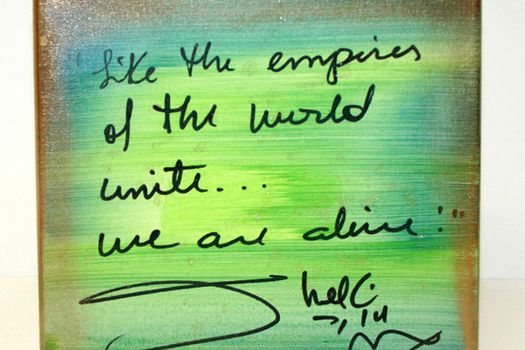 "Like the empires
of the world
unite...
we are alive!"